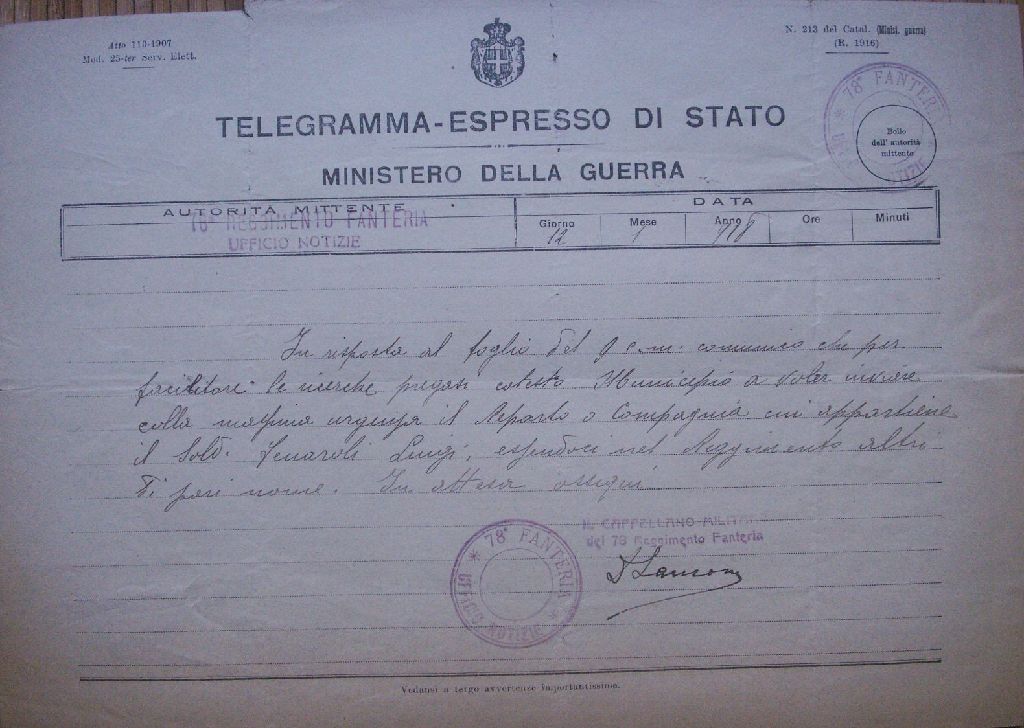 Atto 110-1907
Mod. 25-ter Serv. Elett.
N. 213 del Catal. (Minist. guerra)
(R. 1916)
78° FANTERIA
UFFICIO NOTIZIE
Bollo
dell'autorità
mittente
TELEGRAMMA-ESPRESSO DI STATO
MINISTERO DELLA GUERRA
AUTORITÀ MITTENTE
78° REGGIMENTO FANTERIA
UFFICIO NOTIZIE
DATA
Giorno Mese Anno Ore Minuti
12 1 918
In risposta al foglio del 9 c.m. comunico che per
facilitare le ricerche pregasi codesto Municipio a voler inviare
colla massima urgenza il Reparto o Compagnia cui appartiene
il Sold. Fenaroli Luigi, essendoci nel Reggimento altri
di pari nome. In attesa ossequi
IL CAPPELLANO MILITARE
del 78 Reggimento Fanteria
* 78° FANTERIA *
UFFICIO NOTIZIE
Vedansi a tergo avvertenze importantissime.